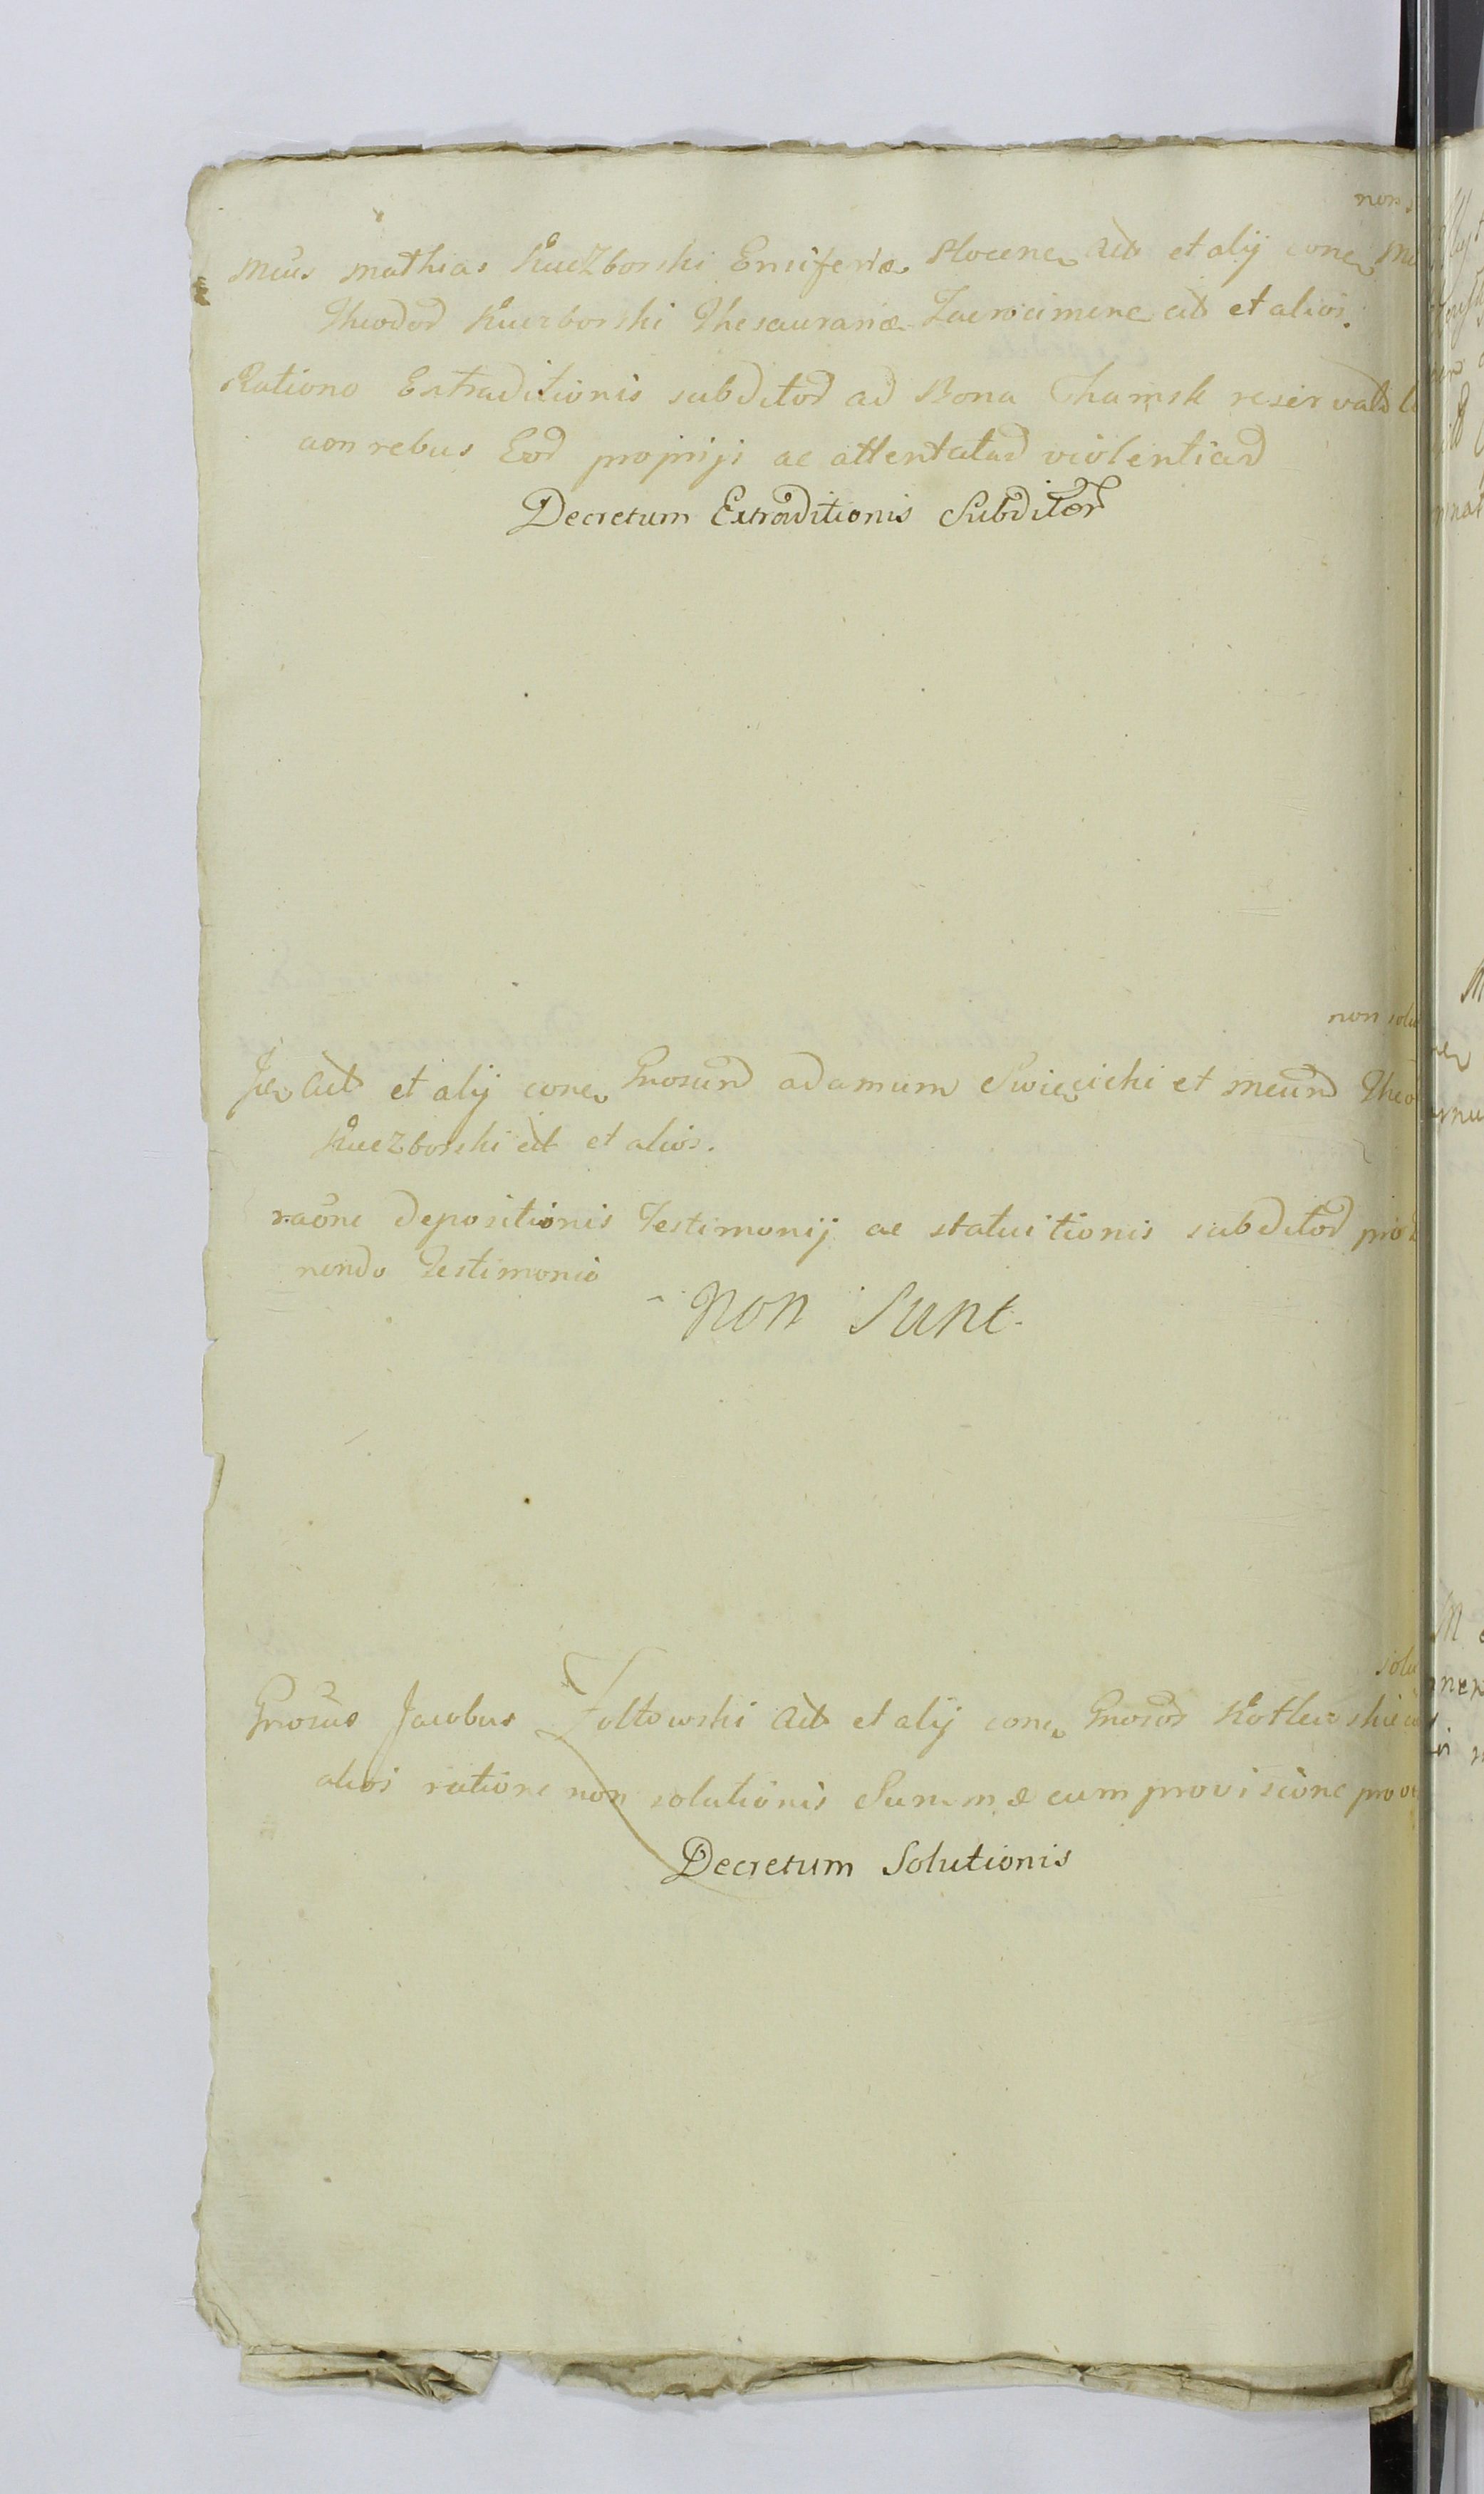 non s
Mcus Mathias Kuczborski Ensiferiæ Plocen Act et alÿ conc
Theodor Kuczborski Thesaurariæ Zacrocimenc cit et alios.
Ratione Extraditionis subditor ad Bona Chamsk reservat
acon rebus Eor proprÿs ac attentatar violentiar
Decretum Extraditionis Subditor
non solu
Act et alÿ conc Gnosum Adamum Swięcicki et Mcum Theo
Kuczborski cit et alios.
raōne depositionis Testimonÿ ac statuitionis subditor pro
nendo Testimonio
Non Sunt
solu
Gnosus Jacobus Zołtowski Act et alÿ conc Gnosos Kotlewskie
alios ratione non solutionis Summæ cum provisione pro
Decretum Solutionis